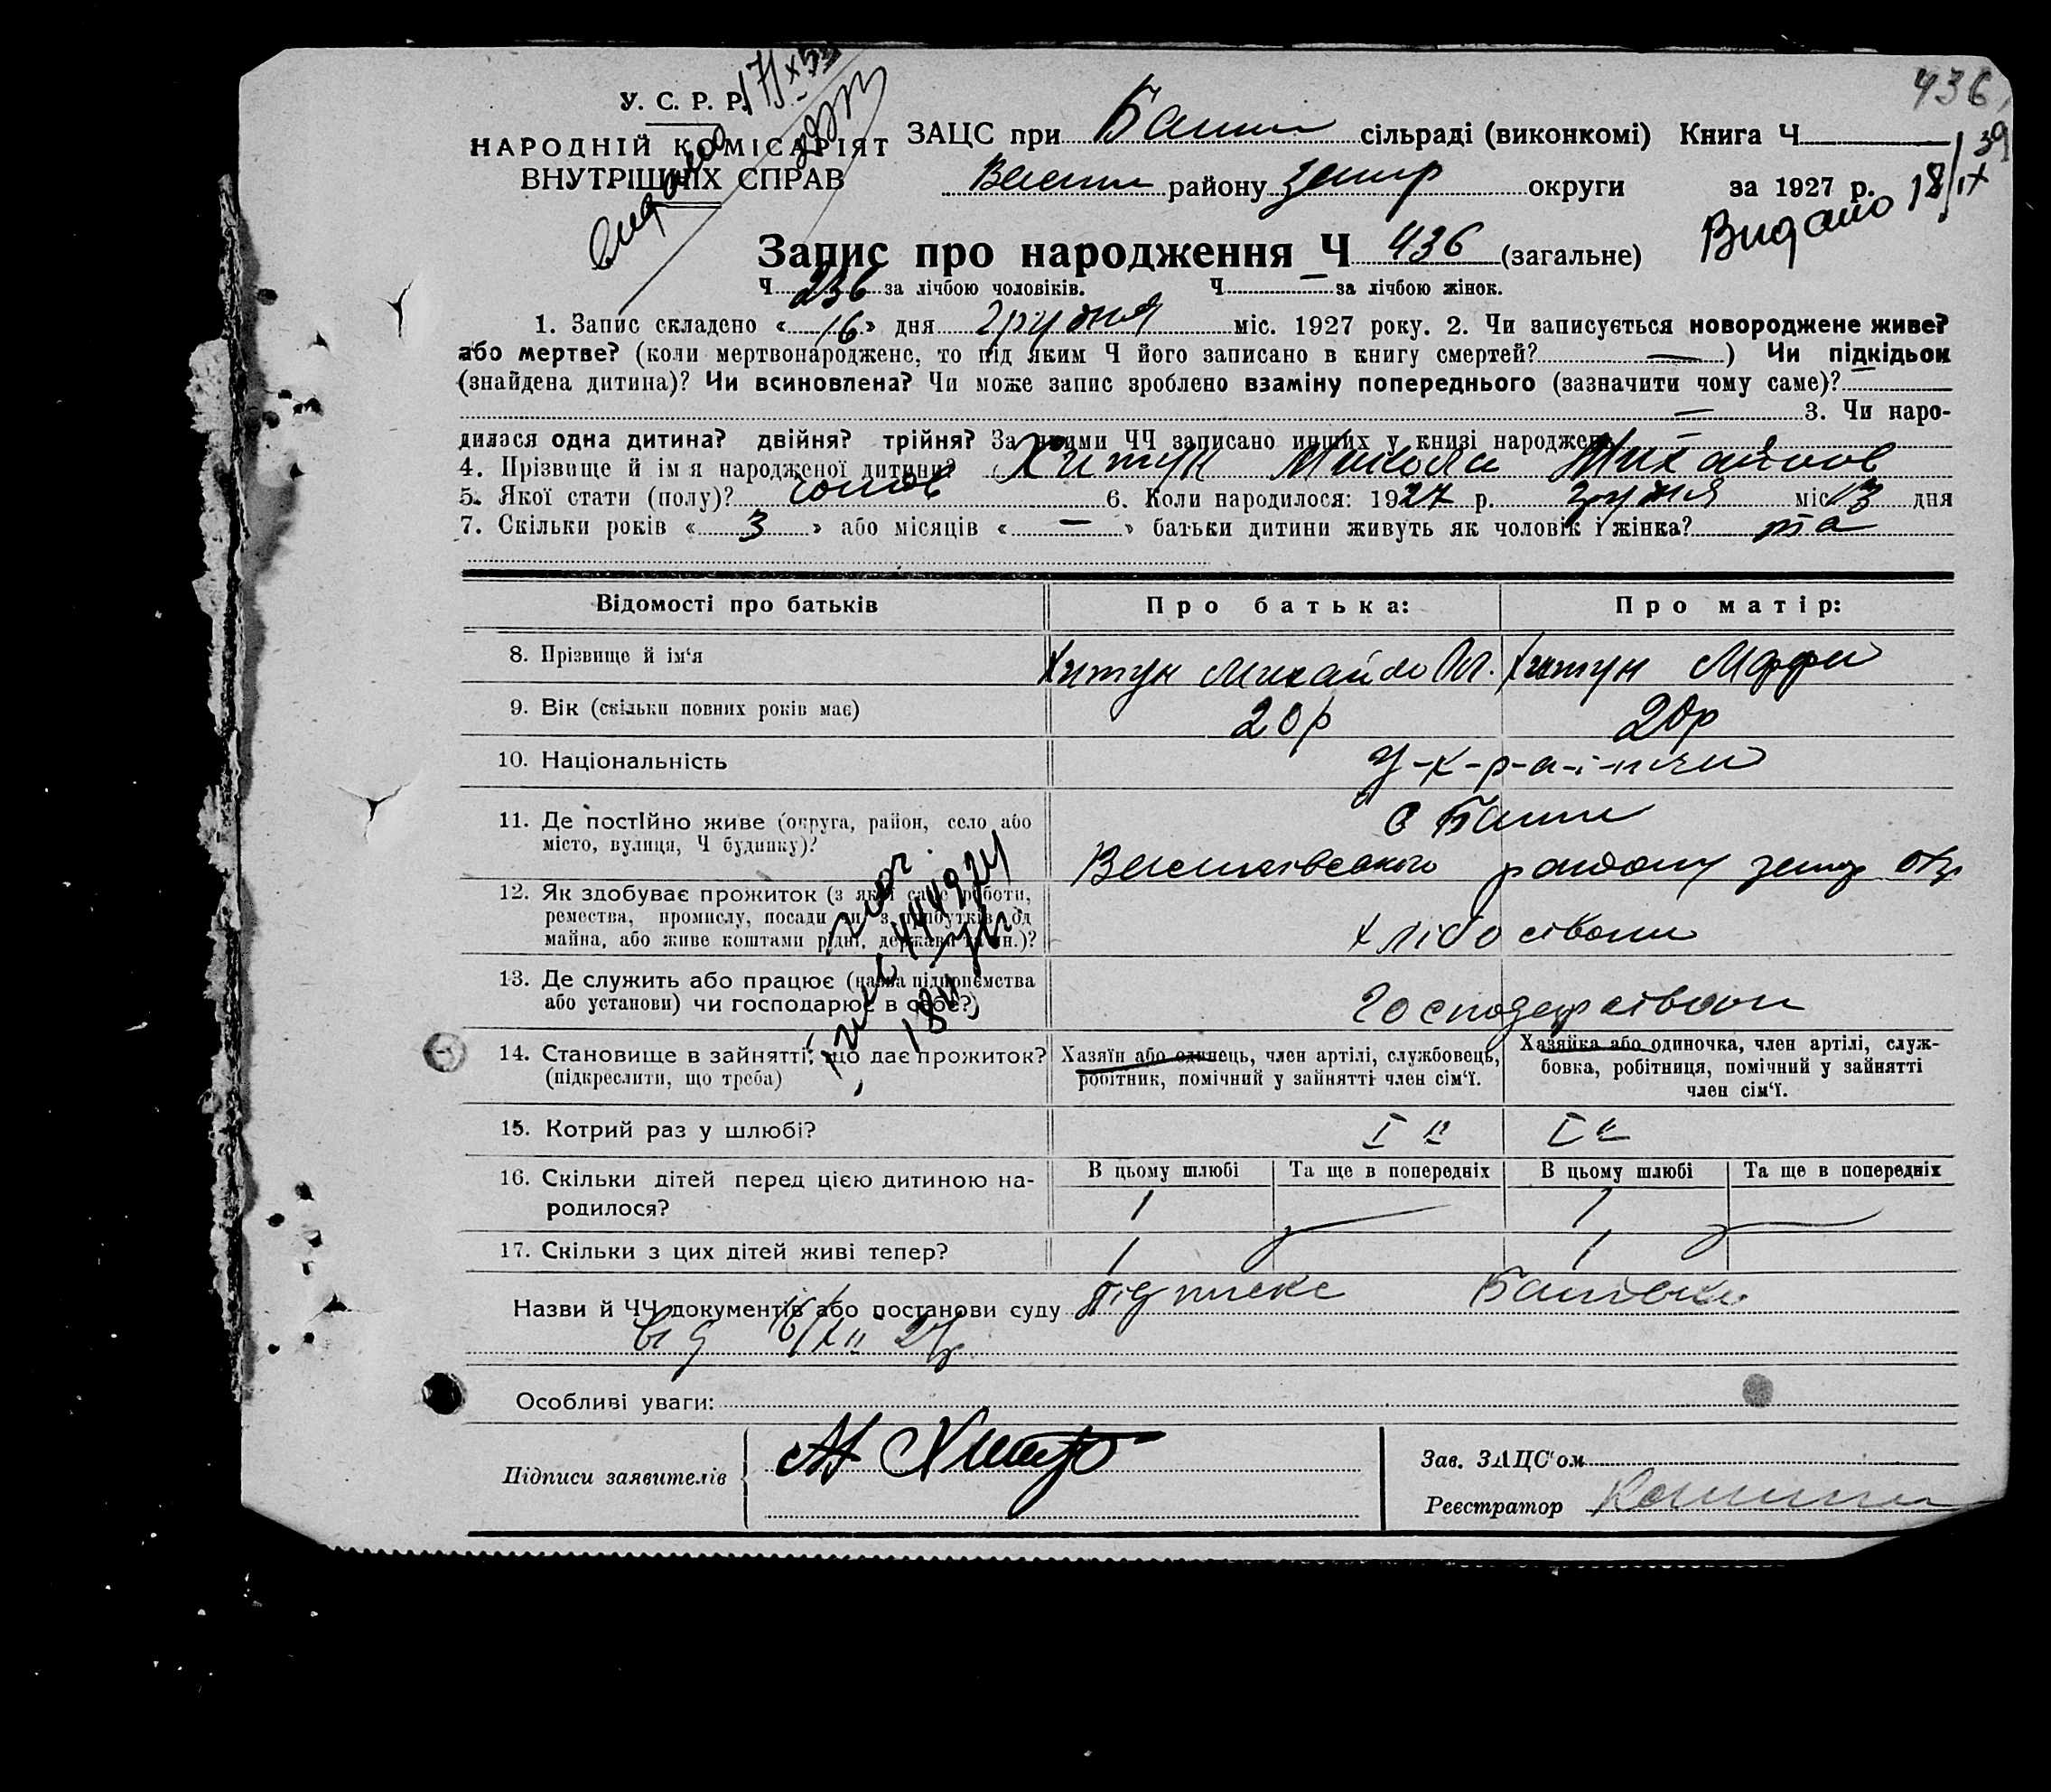 436
У. С. Р. Р.
НАРОДНІЙ КОМІСАРІЯТ
ВНУТРІШНІХ СПРАВ
видано
ЗАЦС при сільраді (виконкомі) Книга Ч
району округи за 1927 р.
Видано 18/IX 39
Запис про народження Ч 436 (загальне)
Ч 236 за лічбою чоловіків. Ч — за лічбою жінок.
1. Запис складено « 16 » дня грудня міс. 1927 року. 2. Чи записується новороджене живе?
або мертве? (коли мертвонароджене, то під яким Ч його записано в книгу смертей? — ) Чи підкідьок
(знайдена дитина)? Чи всиновлена? Чи може запис зроблено взаміну попереднього (зазначити чому саме)?
— 3. Чи наро-
дилася одна дитина? двійня? трійня? За якими ЧЧ записано инших у книзі народжень —
4. Прізвище й ім'я народженої дитини? Хитун Микола Михайлов
5. Якої стати (полу)? 6. Коли народилося: 1927 р. грудня міс 13 дня
7. Скільки років « 3 » або місяців « — » батьки дитини живуть як чоловік і жінка? та
Відомості про батьків Про батька: Про матір:
8. Прізвище й ім'я Хитун Михайло М. Хитун
9. Вік (скільки повних років має) 20 р 20 р
10. Національність У-к-р-а-ї-нци
11. Де постійно живе (округа, район, село або
місто, вулиця, Ч будинку)?
району
12. Як здобуває прожиток (з якої саме роботи,
ремества, промислу, посади чи з прибутків од
майна, або живе коштами рідні, держави та ин.)?
13. Де служить або працює (назва підприємства
або установи) чи господарює в себе?)
14. Становище в зайнятті, що дає прожиток? Хазяїн або одинець, член артілі, службовець, Хазяйка або одиночка, член артілі, служ-
(підкреслити, що треба) робітник, помічний у зайнятті член сім'ї. бовка, робітниця, помічний у зайнятті
член сім'ї.
15. Котрий раз у шлюбі? I й I й
16. Скільки дітей перед цією дитиною на- В цьому шлюбі Та ще в попередніх В цьому шлюбі Та ще в попередніх
родилося? 1 1
17. Скільки з цих дітей живі тепер? 1 1
Назви й ЧЧ документів або постанови суду
Особливі уваги:
Підписи заявителів
Зав. ЗАЦС'ом
Реєстратор